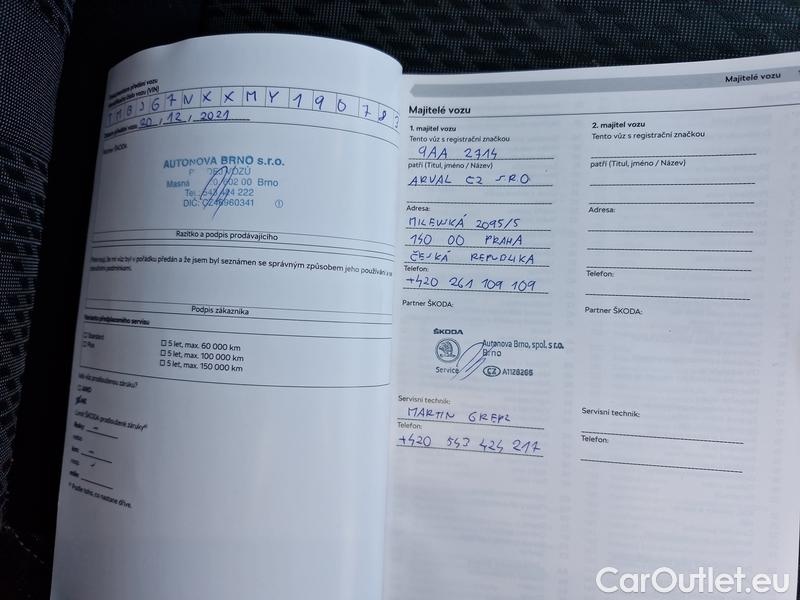 předání vozu
číslo vozu (VIN)
T M B J G 7 N X X M Y 1 9 0 7 8 3
Datum předání vozu 20 , 12 , 2021
Partner ŠKODA
AUTONOVA BRNO s.r.o.
Masná 602 00 Brno
Tel.: 543 424 222
DIČ: CZ46960341 ①
Razítko a podpis prodávajícího
že mi vůz byl v pořádku předán a že jsem byl seznámen se správným způsobem jeho používání a se
záručními podmínkami.
Podpis zákazníka
Varianta předplaceného servisu
☐ Standard
☐ Plus
☐ 5 let, max. 60 000 km
☐ 5 let, max. 100 000 km
☐ 5 let, max. 150 000 km
prodlouženou záruku?
☐ ANO
NE
Limit ŠKODA prodloužené záruky
Roky
nebo
km
nebo
Podle toho, co nastane dříve.
Majitelé vozu
Majitelé vozu
1. majitel vozu
Tento vůz s registrační značkou
9AA 2714
patří (Titul, jméno / Název)
ARVAL CZ S.R.O
Adresa:
MILEVSKÁ 2095/5
140 00 PRAHA
ČESKÁ REPUBLIKA
Telefon:
+420 261 109 109
Partner ŠKODA:
ŠKODA
Autonova Brno, spol. s r.o.
Brno
Service
CZ A1128265
Servisní technik:
MARTIN
Telefon:
+420 543 424 217
2. majitel vozu
Tento vůz s registrační značkou
patří (Titul, jméno / Název)
Adresa:
Telefon:
Partner ŠKODA:
Servisní technik:
Telefon:
CarOutlet.eu